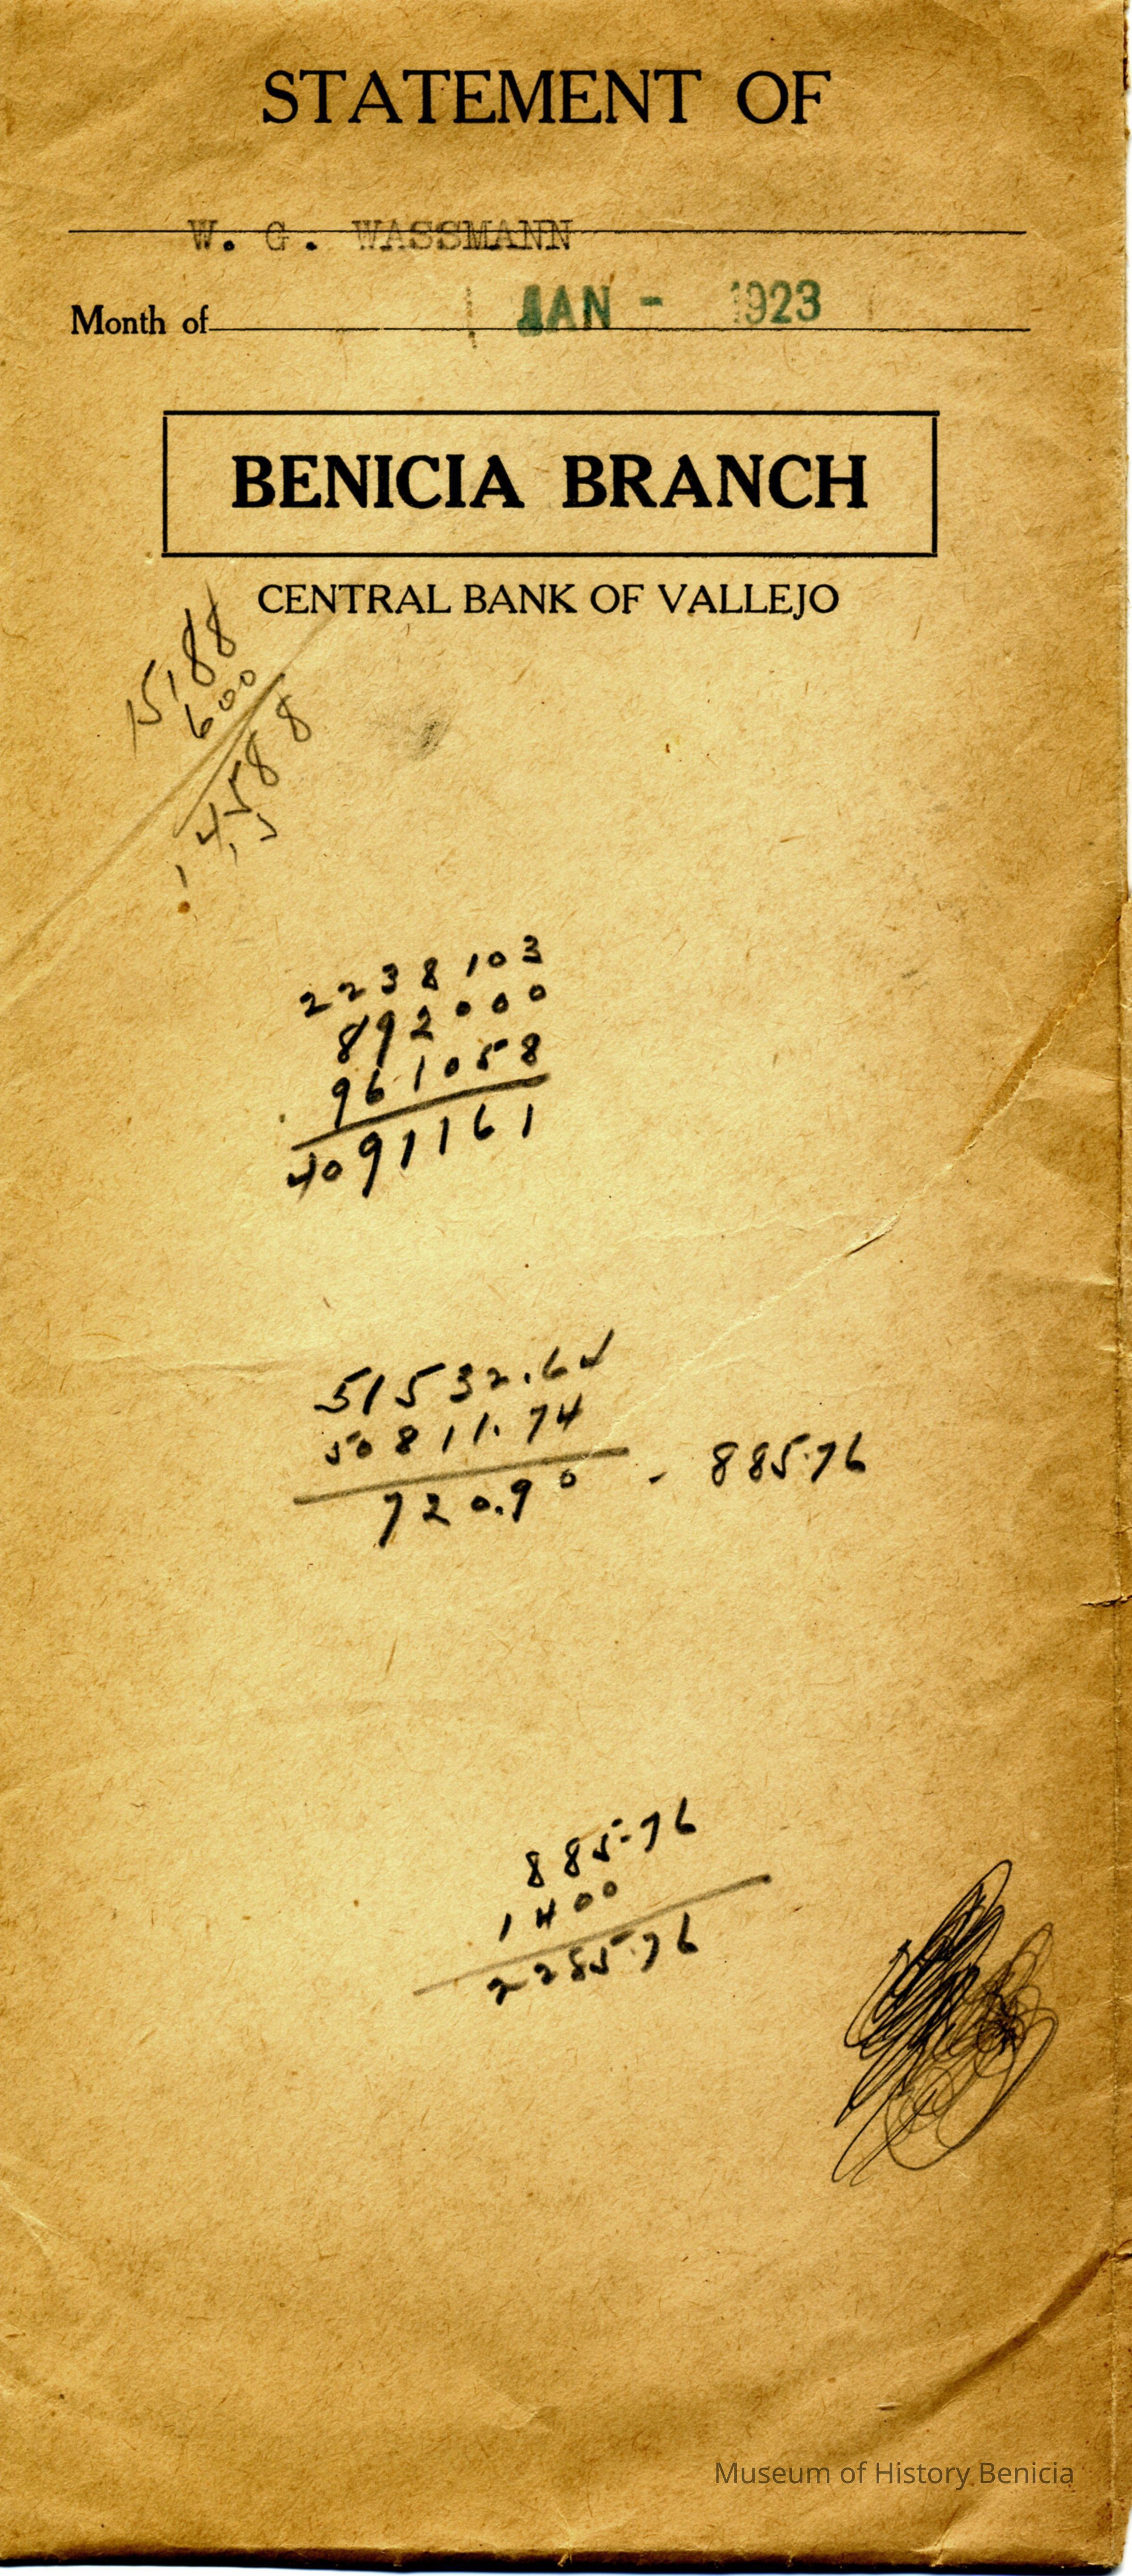 STATEMENT OF
W. G. WASSMANN
Month of JAN - 1923
BENICIA BRANCH
CENTRAL BANK OF VALLEJO
15188
600
14588
2238103
892000
961058
4091161
51532.64
50811.74
720.90 - 885.76
885.76
1400
2285.76
Museum of History Benicia